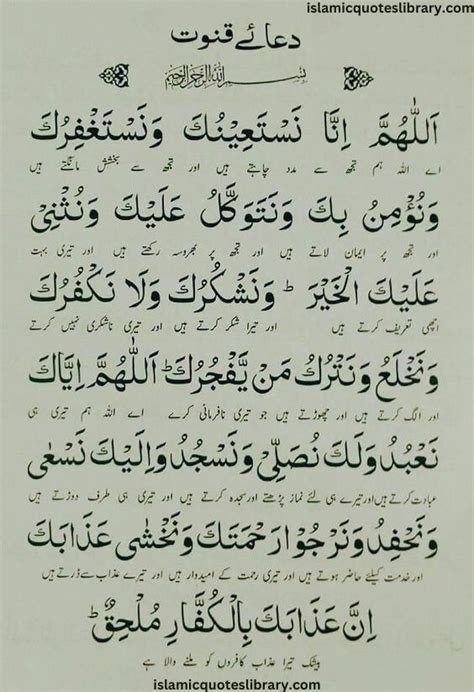 islamicquoteslibrary.com
دعائے قنوت
بسم الله الرحمن الرحيم
اَللّٰهُمَّ اِنَّا نَسْتَعِيْنُكَ وَنَسْتَغْفِرُكَ
اے اللہ ہم تجھ سے مدد چاہتے ہیں اور تجھ سے بخشش مانگتے ہیں
وَنُؤْمِنُ بِكَ وَنَتَوَكَّلُ عَلَيْكَ وَنُثْنِىْ
اور تجھ پر ایمان لاتے ہیں اور تجھ پر بھروسہ رکھتے ہیں اور تیری بہت
عَلَيْكَ الْخَيْرَ ؕ وَنَشْكُرُكَ وَلَا نَكْفُرُكَ
اچھی تعریف کرتے ہیں اور تیرا شکر کرتے ہیں اور تیری ناشکری نہیں کرتے
وَنَخْلَعُ وَنَتْرُكُ مَنْ يَّفْجُرُكَ ؕ اَللّٰهُمَّ اِيَّاكَ
اور الگ کرتے ہیں اور چھوڑتے ہیں جو تیری نافرمانی کرے اے اللہ ہم تیری ہی
نَعْبُدُ وَلَكَ نُصَلِّىْ وَنَسْجُدُ وَاِلَيْكَ نَسْعٰى
عبادت کرتے ہیں اور تیرے ہی لئے نماز پڑھتے اور سجدہ کرتے ہیں اور تیری ہی طرف دوڑتے ہیں
وَنَحْفِدُ وَنَرْجُوْا رَحْمَتَكَ وَنَخْشٰى عَذَابَكَ
اور خدمت کیلئے حاضر ہوتے ہیں اور تیری رحمت کے امیدوار ہیں اور تیرے عذاب سے ڈرتے ہیں
اِنَّ عَذَابَكَ بِالْكُفَّارِ مُلْحِقٌ ؕ
بیشک تیرا عذاب کافروں کو ملنے والا ہے
islamicquoteslibrary.com